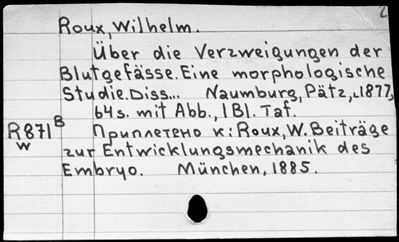 Roux, Wilhelm.
Über die Verzweigungen der
Blutgefässe. Eine morphologische
Studie. Diss... Naumburg, Pätz, 1877,
64 s. mit Abb., 1 Bl. Taf.
R871 B
w
Приплетено к: Roux, W. Beiträge
zur Entwicklungsmechanik des
Embryo. München, 1885.